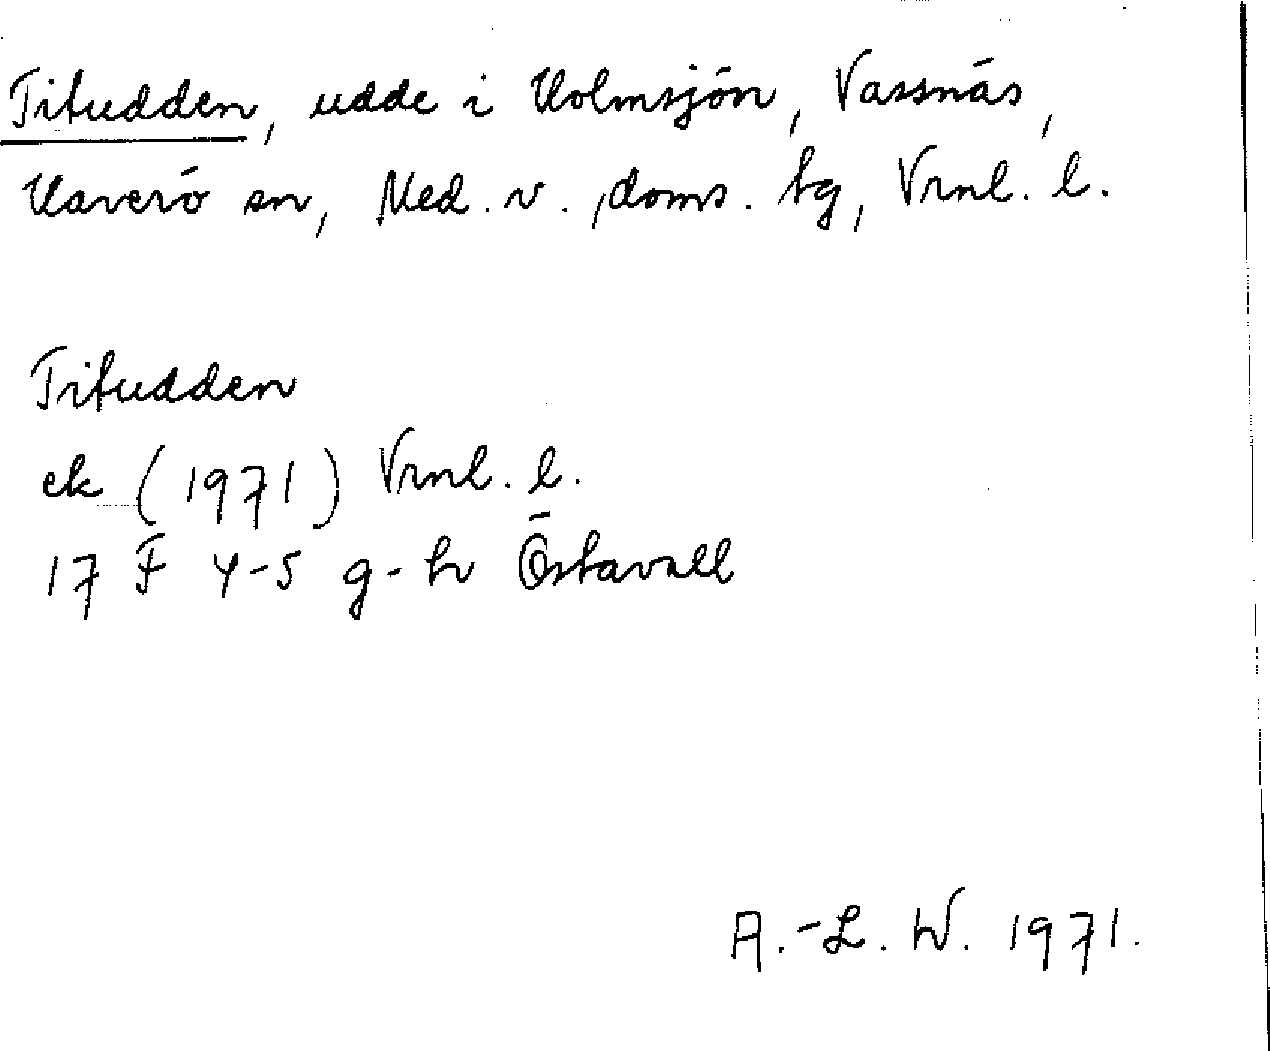 Titudden, udde i Holmsjön, Vassnäs,
Haverö sn, Med. v. doms. tg, Vrnl. l.
Titudden
ek (1971) Vrnl. l.
17 F 4-5 g-h Östavall
A.-L. W. 1971.